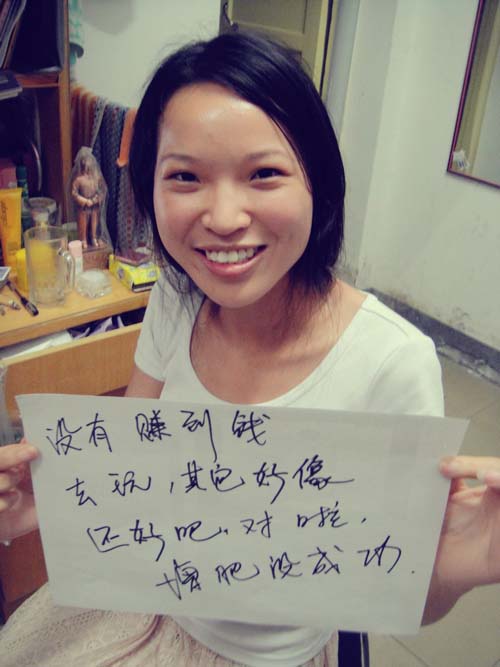 没有赚到钱
去玩，其它好像
还好吧．对啦，
增肥没成功．